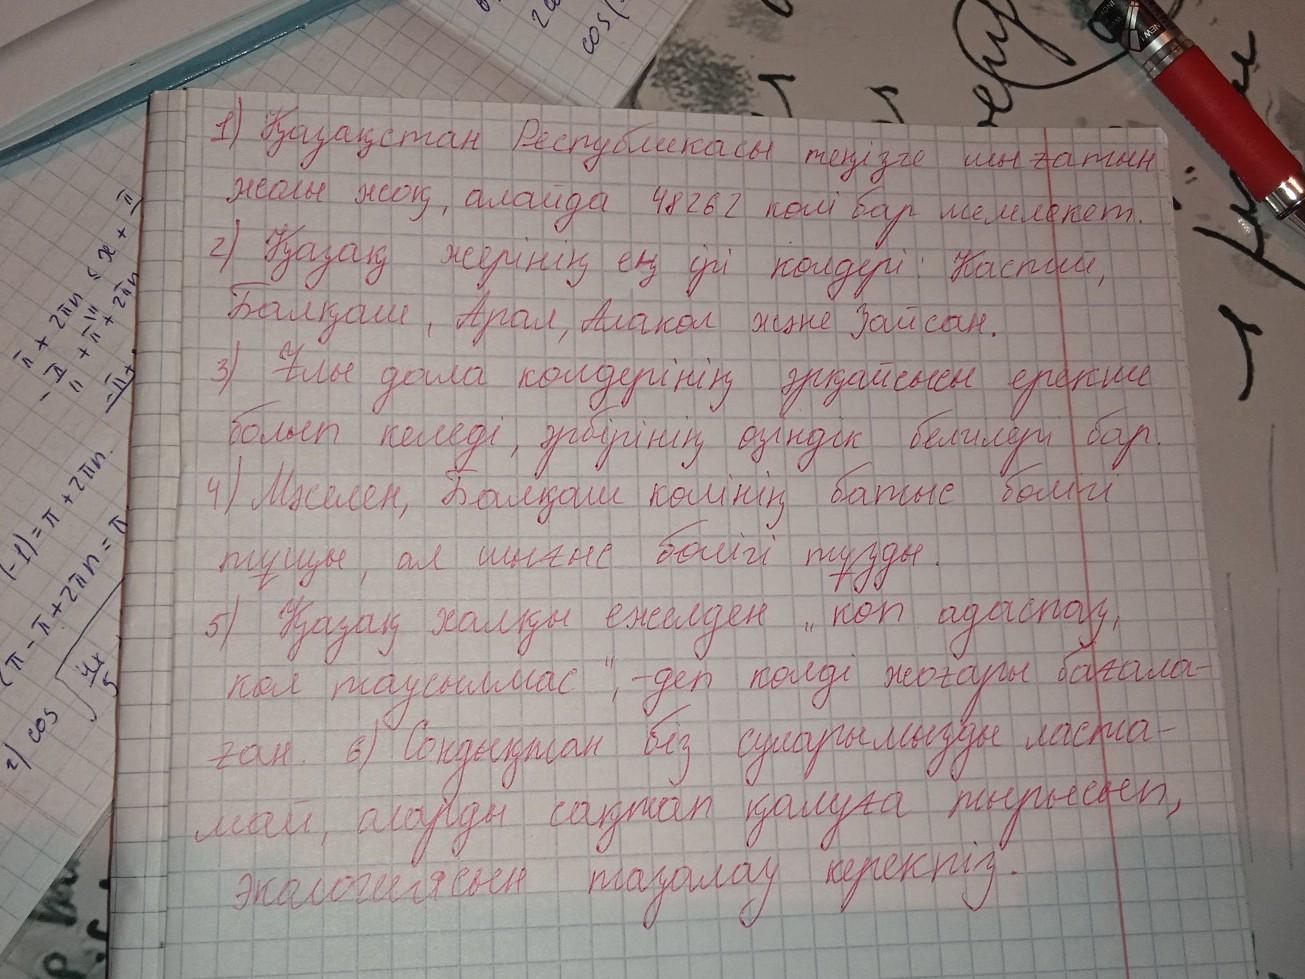 1) Қазақстан Республикасы теңізге шығатын
жолы жоқ, алайда 48262 көлі бар мемлекет.
2) Қазақ жерінің ең ірі көлдері: Каспий,
Балқаш, Арал, Алакөл және Зайсан.
3) Ұлы дала көлдерінің әрқайсысы ерекше
болып келеді, әрбірінің өзіндік белгілері бар.
4) Мәселен, Балқаш көлінің батыс бөлігі
тұщы, ал шығыс бөлігі тұзды.
5) Қазақ халқы ежелден „көп адаспау,
көл таусылмас", -деп көлді жоғары бағала-
ған. 6) Сондықтан біз суларымызды ласта-
май, аларды сақтап қалуға тырысып,
экалогиясын тазалау керекпіз.
π + 2πn ≤ x + π
(-1) = π + 2πn
π - π + 2πn = π
г) cos √ 4x 5
cos(
NEW